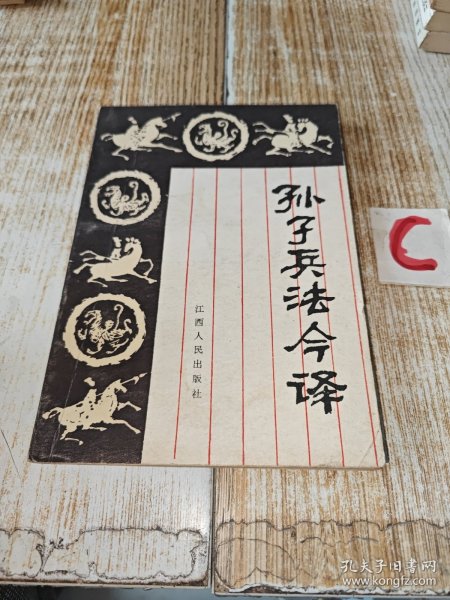 孙子兵法今译
江西人民出版社
C
孔夫子旧书网
www.kongfz.com